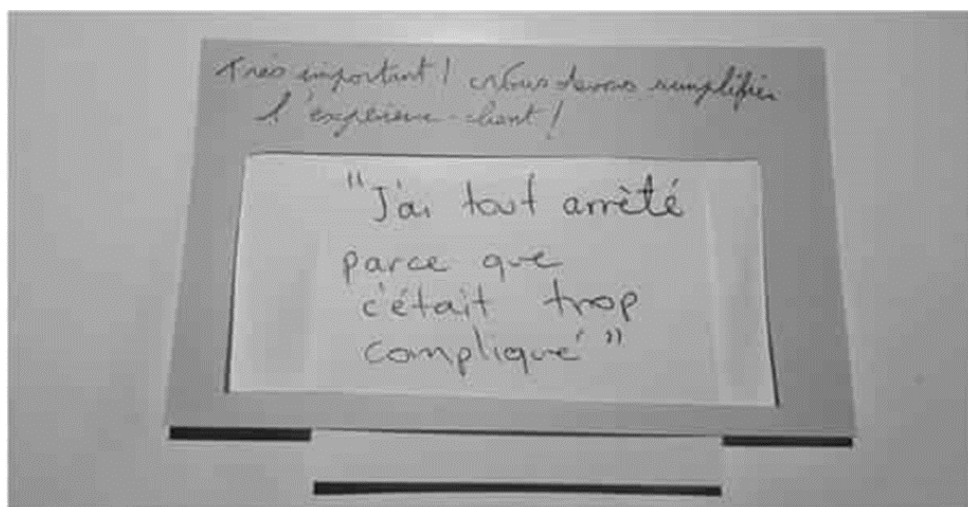 Très important ! Nous devons simplifier
l'expérience-client !
"J'ai tout arrêté
parce que
c'était trop
compliqué"